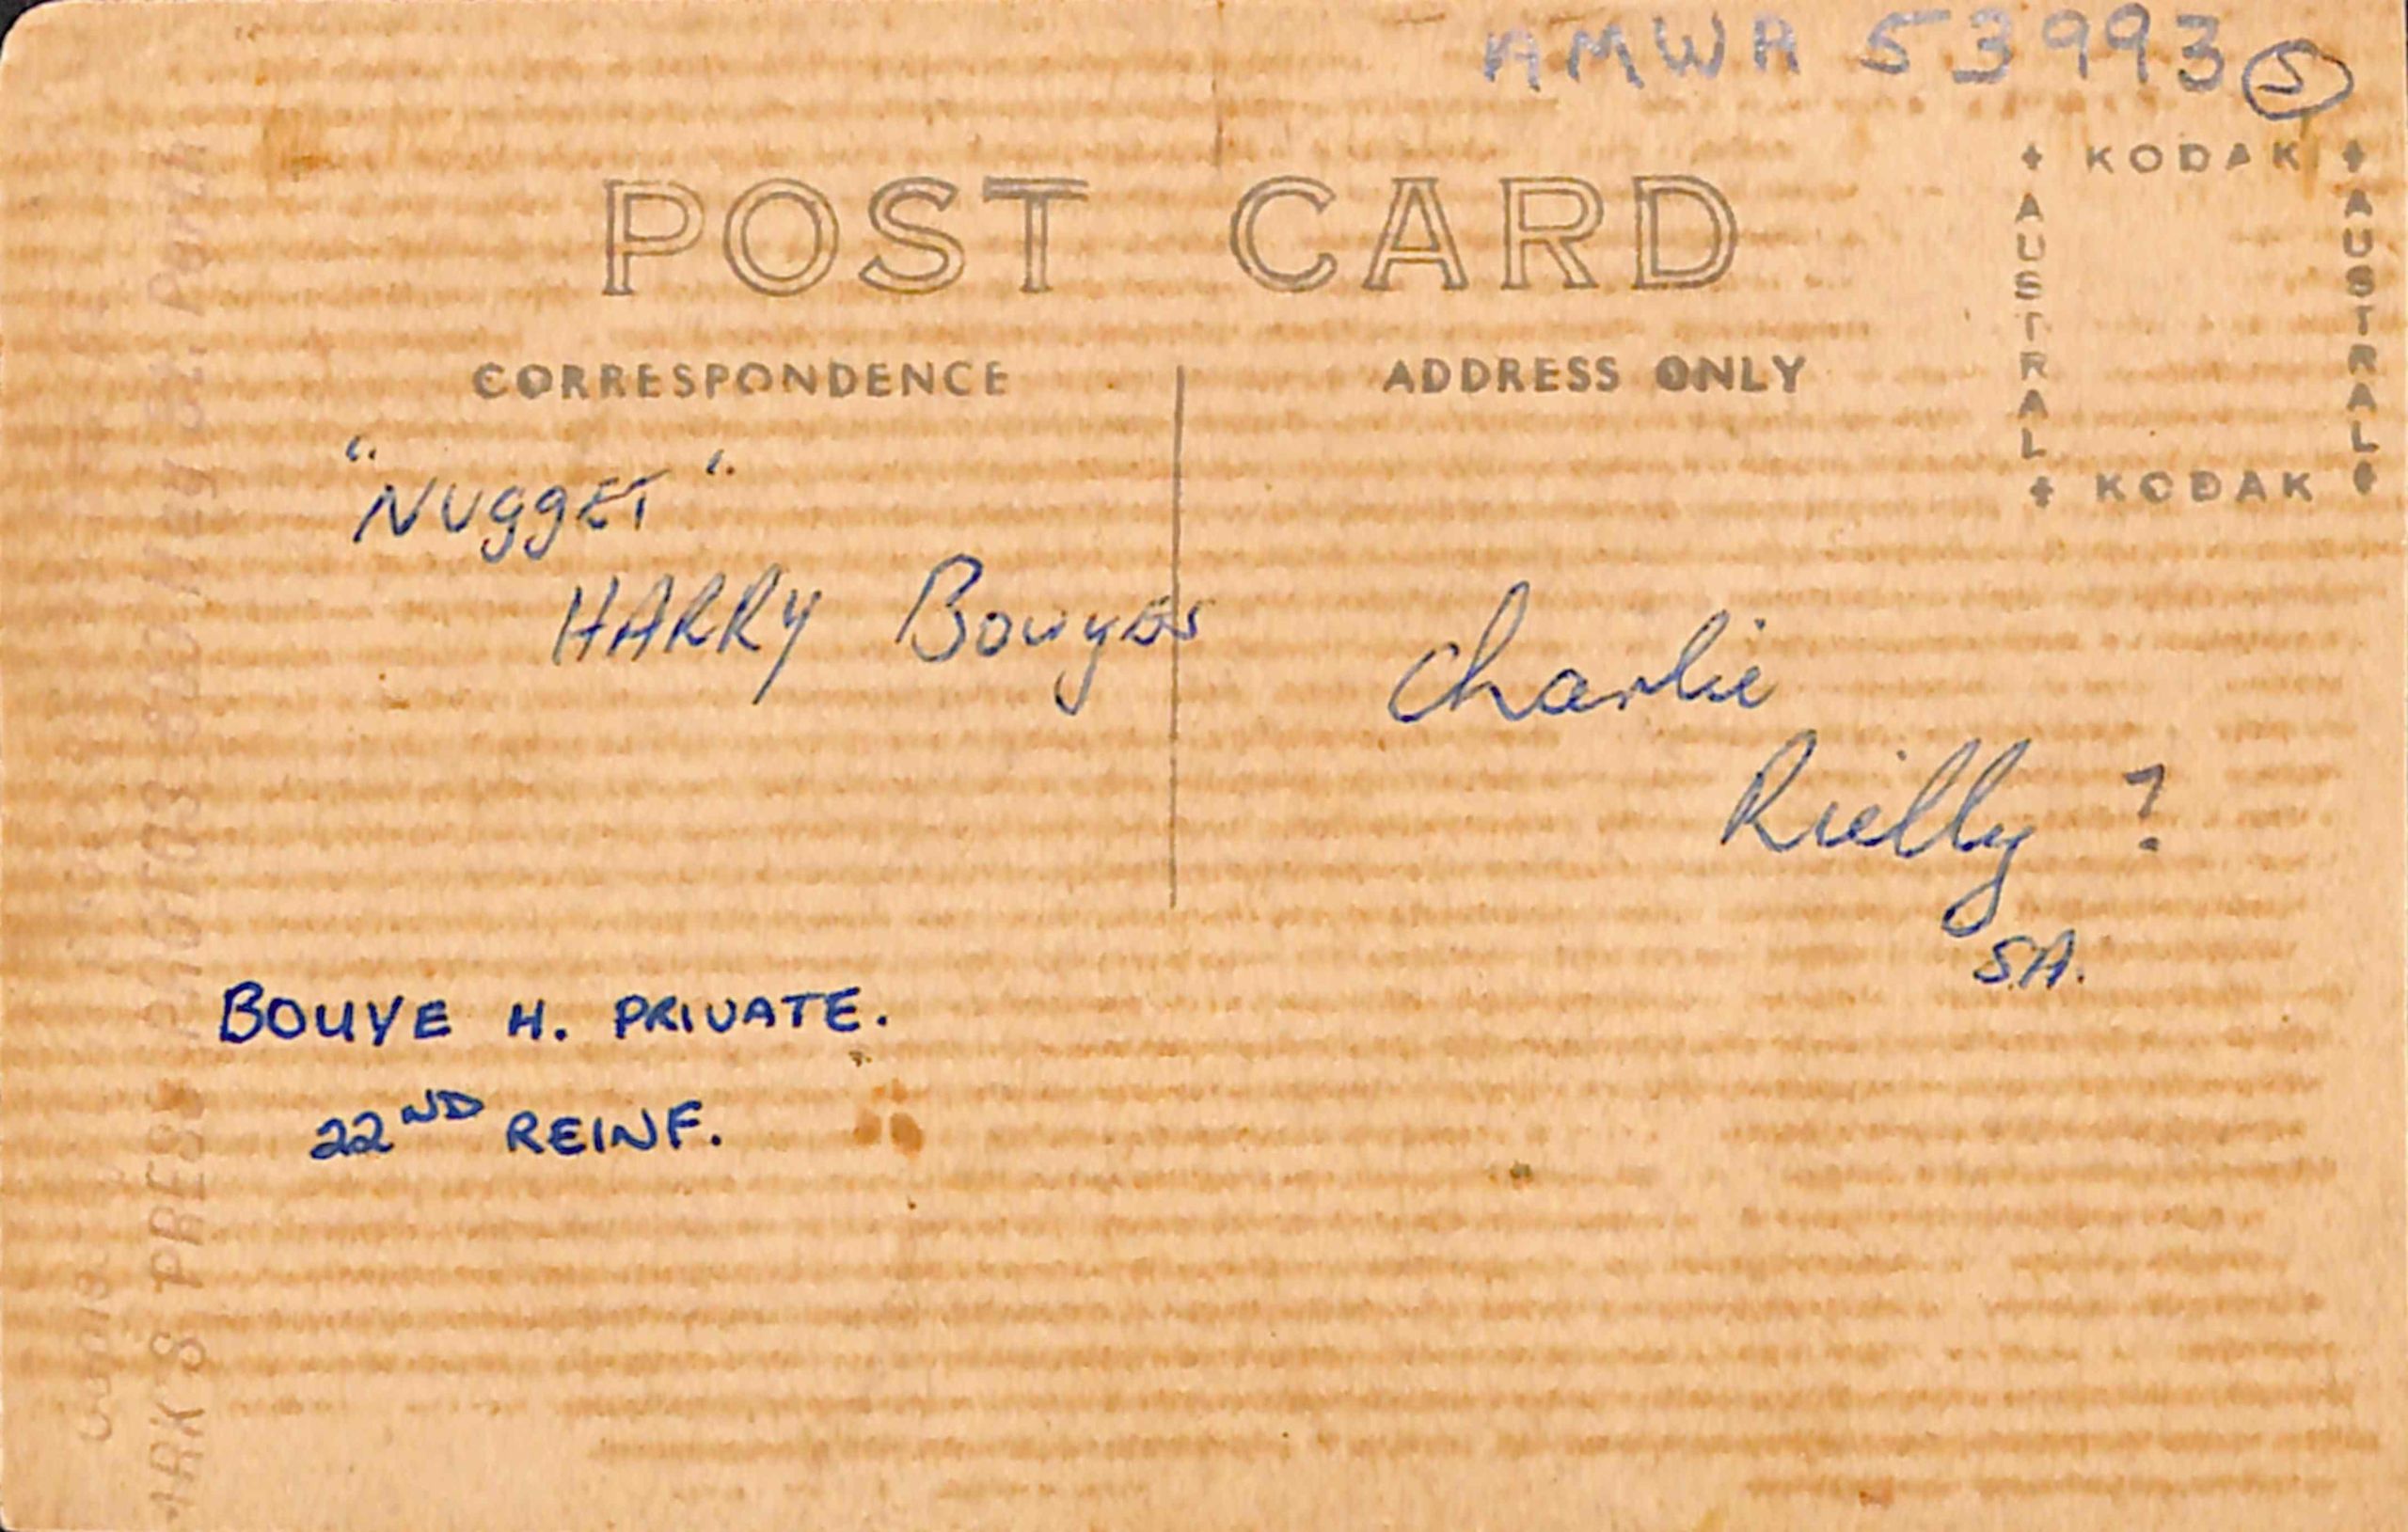 AMWA 53993 5
KODAK
AUSTRAL
AUSTRAL
KODAK
POST CARD
CORRESPONDENCE
ADDRESS ONLY
"NuggET"
HARRY Bouyes
Charlie
Rielly ?
SA.
BOUYE H. PRIVATE.
22ND REINF.
PRESS PHOTOS